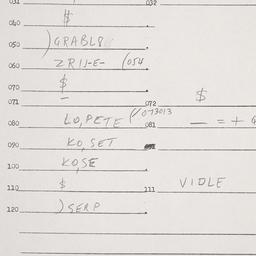 031 032
040 $
050 )GRABL8
060 ZRIJ-E- (054
070 $
071 — 072 $
080 LO,PETE (/073013 081 — = +
090 KO,SET
100 KO,SE
110 $ 111 VIOLE
120 )SERP